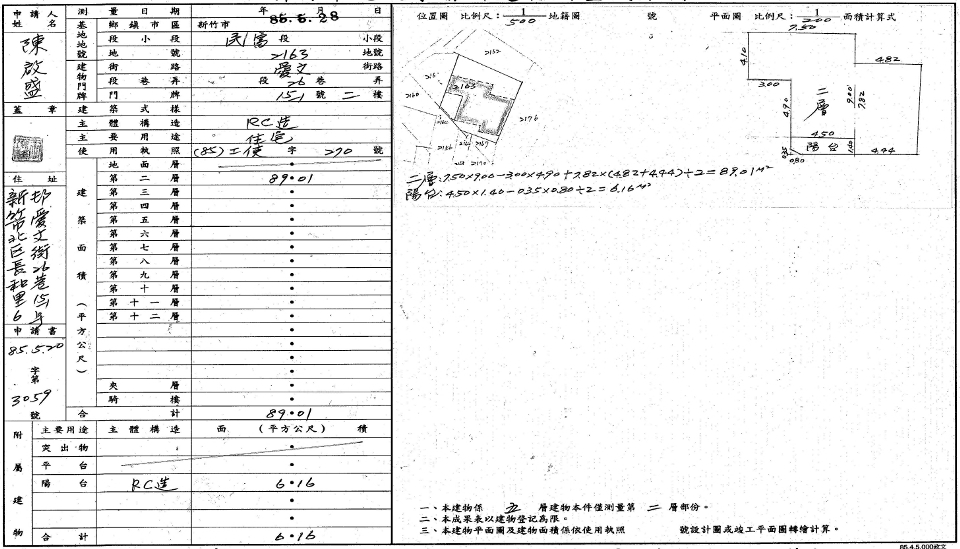 申請人姓名
陳啟盛
蓋章
住址
新竹市北區長和里6鄰
愛文街26巷15/1
申請書
85.5.20
字第
3059
號
測量日期 年 月 日
85.5.28
基地地號
鄉鎮市區 新竹市
段小段 民富 段 小段
地號 2163 地號
建物門牌
街路 愛文 街路
段巷弄 段 26 巷 弄
門牌 15/1 號 二 樓
建築式樣
主體構造 RC造
主要用途 住宅
使用執照 (85)工使 字 270 號
建築面積(平方公尺)
地面層
第二層 89.01
第三層
第四層
第五層
第六層
第七層
第八層
第九層
第十層
第十一層
第十二層
夾層
騎樓
合計 89.01
附屬建物
主要用途 主體構造 面(平方公尺)積
突出物
平台
陽台 RC造 6.16
合計 6.16
位置圖 比例尺:1/500 地籍圖 號
平面圖 比例尺:1/200 面積計算式
2152
2163
2160
2176
7.50
4.10
4.82
3.00
二層
4.90
9.00
7.82
4.50
陽台
1.40
4.44
0.35
0.80
二層:7.50×9.00-3.00×4.90+7.82×(4.82+4.44)÷2=89.01M²
陽台:4.50×1.40-0.35×0.80÷2=6.16M²
一、本建物係 五 層建物本件僅測量第 二 層部份。
二、本成果表以建物登記為限。
三、本建物平面圖及建物面積係依使用執照 號設計圖或竣工平面圖轉繪計算。